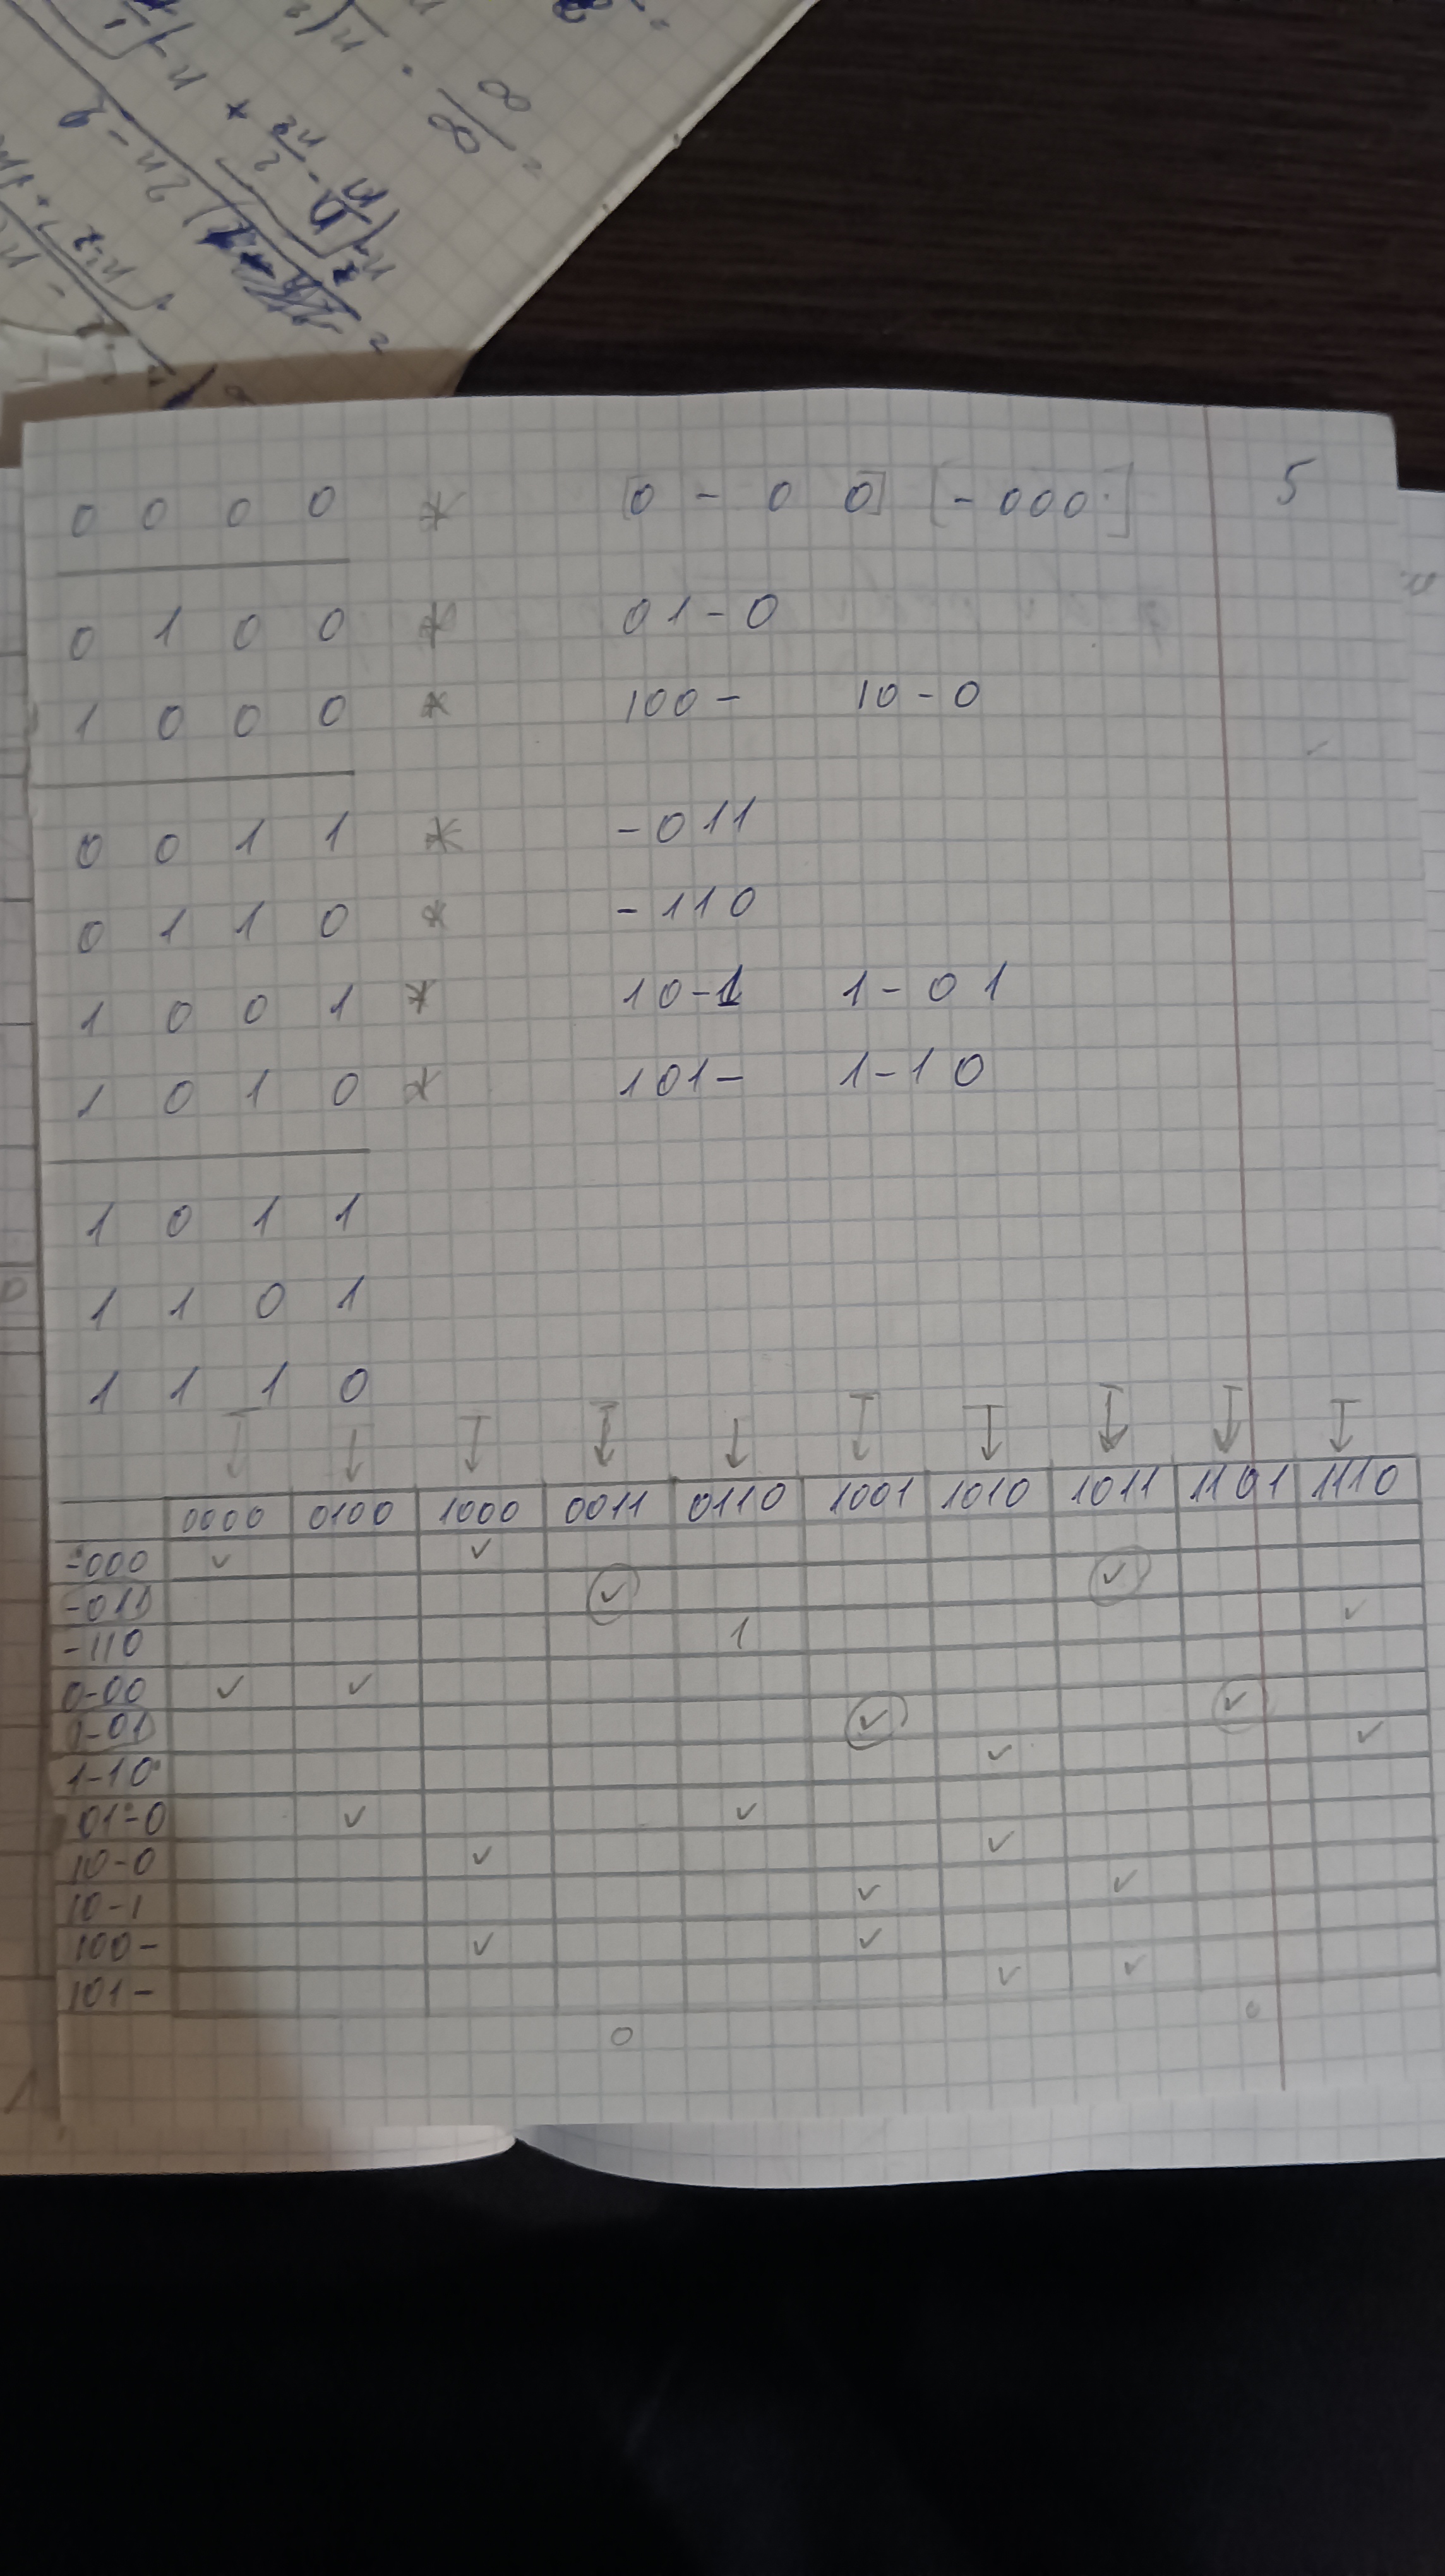 ∞
∞
2n-9
0 0 0 0 * [0 - 0 0] [-000] 5
0 1 0 0 * 01-0
1 0 0 0 * 100- 10-0
0 0 1 1 * -011
0 1 1 0 * -110
1 0 0 1 * 10-1 1-01
1 0 1 0 * 101- 1-10
1 0 1 1
1 1 0 1
1 1 1 0
0000 0100 1000 0011 0110 1001 1010 1011 1101 1110
-000 ✓ ✓
-011 ✓ ✓
-110 1 ✓
0-00 ✓ ✓
1-01 ✓ ✓
1-10 ✓ ✓
01-0 ✓ ✓
10-0 ✓ ✓
10-1 ✓ ✓
100- ✓ ✓
101- ✓ ✓
0 0